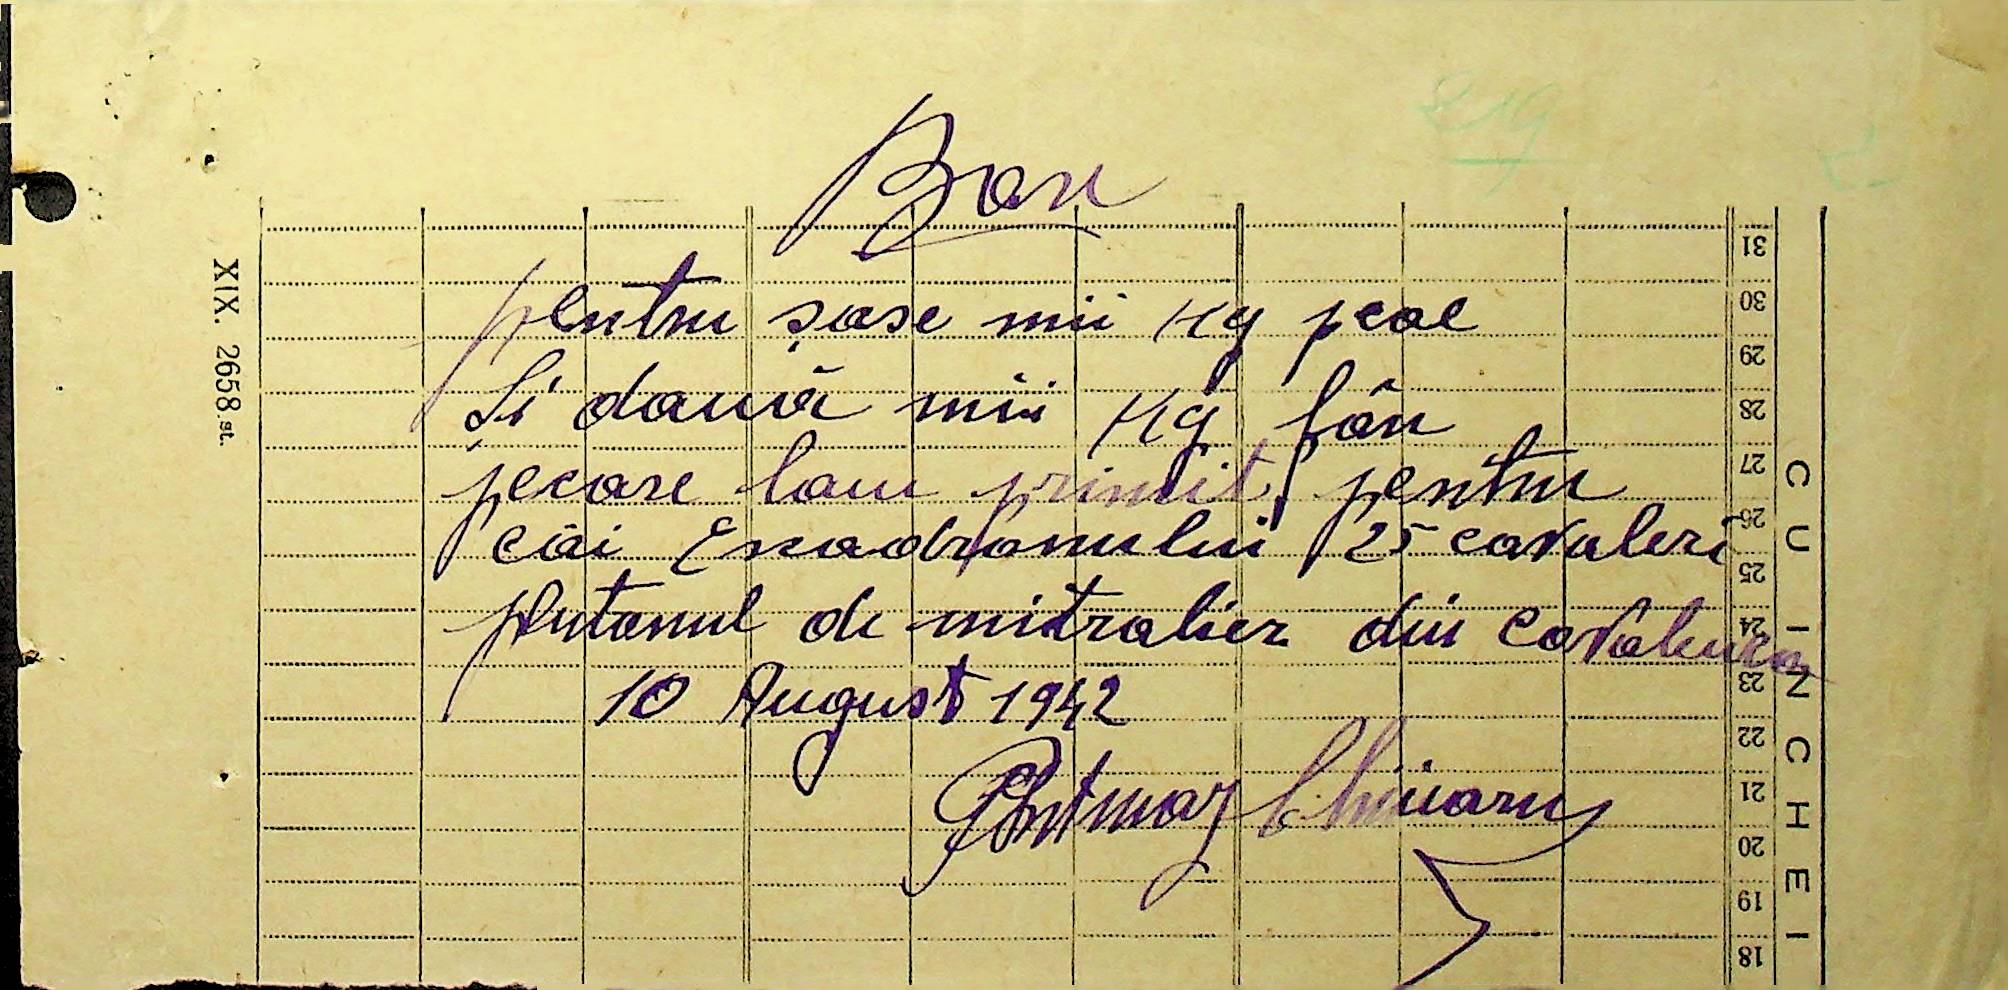 219
Bon
pentru șase mii Kg peae
Și două mii Kg fân
pecare lam primit, pentru
căi Escadronului 25 cavaleri
plutonul de mitralier din Cavaleria
10 August 1942
XIX. 2658. st.
CU INCHEI
31
30
29
28
27
26
25
24
23
22
21
20
19
18